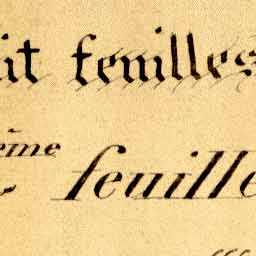 it feuilles
ème
feuille